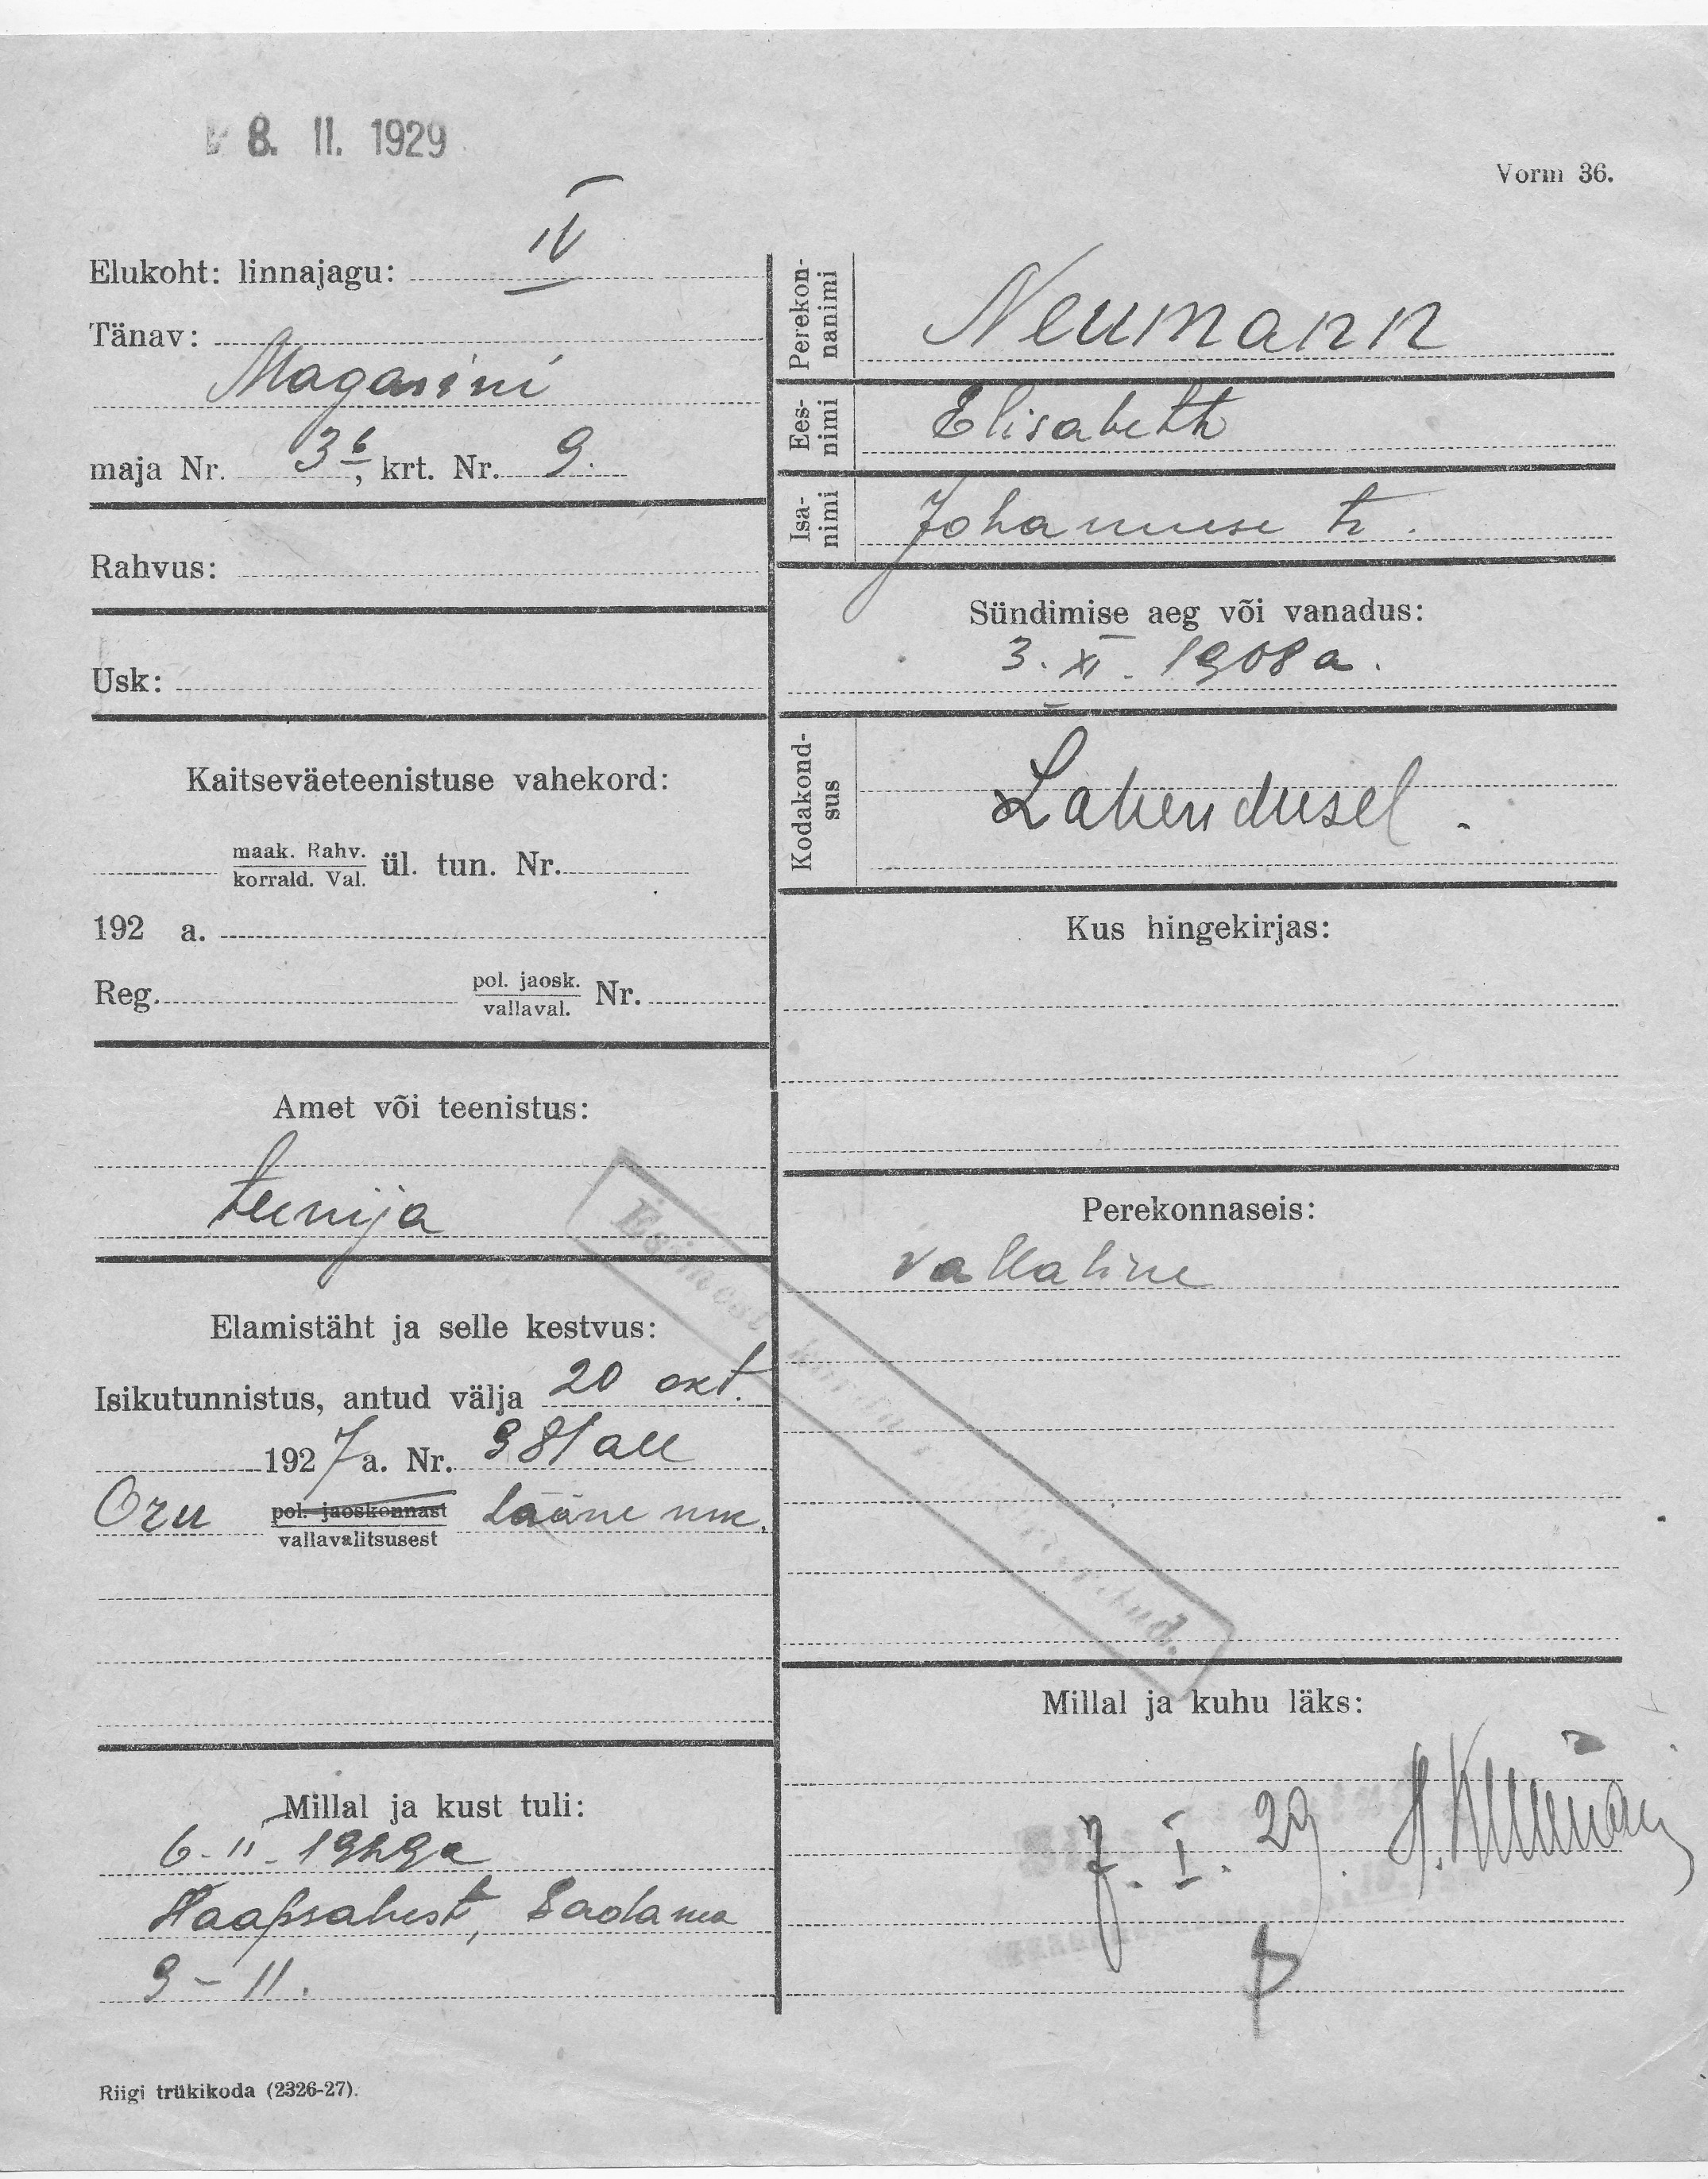 8. II. 1929
Vorm 36.
Elukoht: linnajagu: IV
Tänav:
Magasini
maja Nr. 3b, krt. Nr. 9.
Rahvus:
Usk:
Kaitseväeteenistuse vahekord:
maak. Rahv.
korrald. Val. ül. tun. Nr.
192 a.
Reg. pol. jaosk.
vallaval. Nr.
Amet või teenistus:
teenija
Elamistäht ja selle kestvus:
Isikutunnistus, antud välja 20 okt.
1927 a. Nr. 981 all
Oru pol. jaoskonnast
vallavalitsusest Lääne mk.
Millal ja kust tuli:
6. II. 1929a
Haapsalust, Sadama
9 – 11.
Riigi trükikoda (2326-27).
Perekon-
nanimi
Neumann
Ees-
nimi
Elisabeth
Isa-
nimi
Johannese tr.
Sündimise aeg või vanadus:
3. XI. 1908 a.
Kodakond-
sus
Lahendusel.
Kus hingekirjas:
Perekonnaseis:
vallaline
Esimest
Millal ja kuhu läks:
7. I. 29.